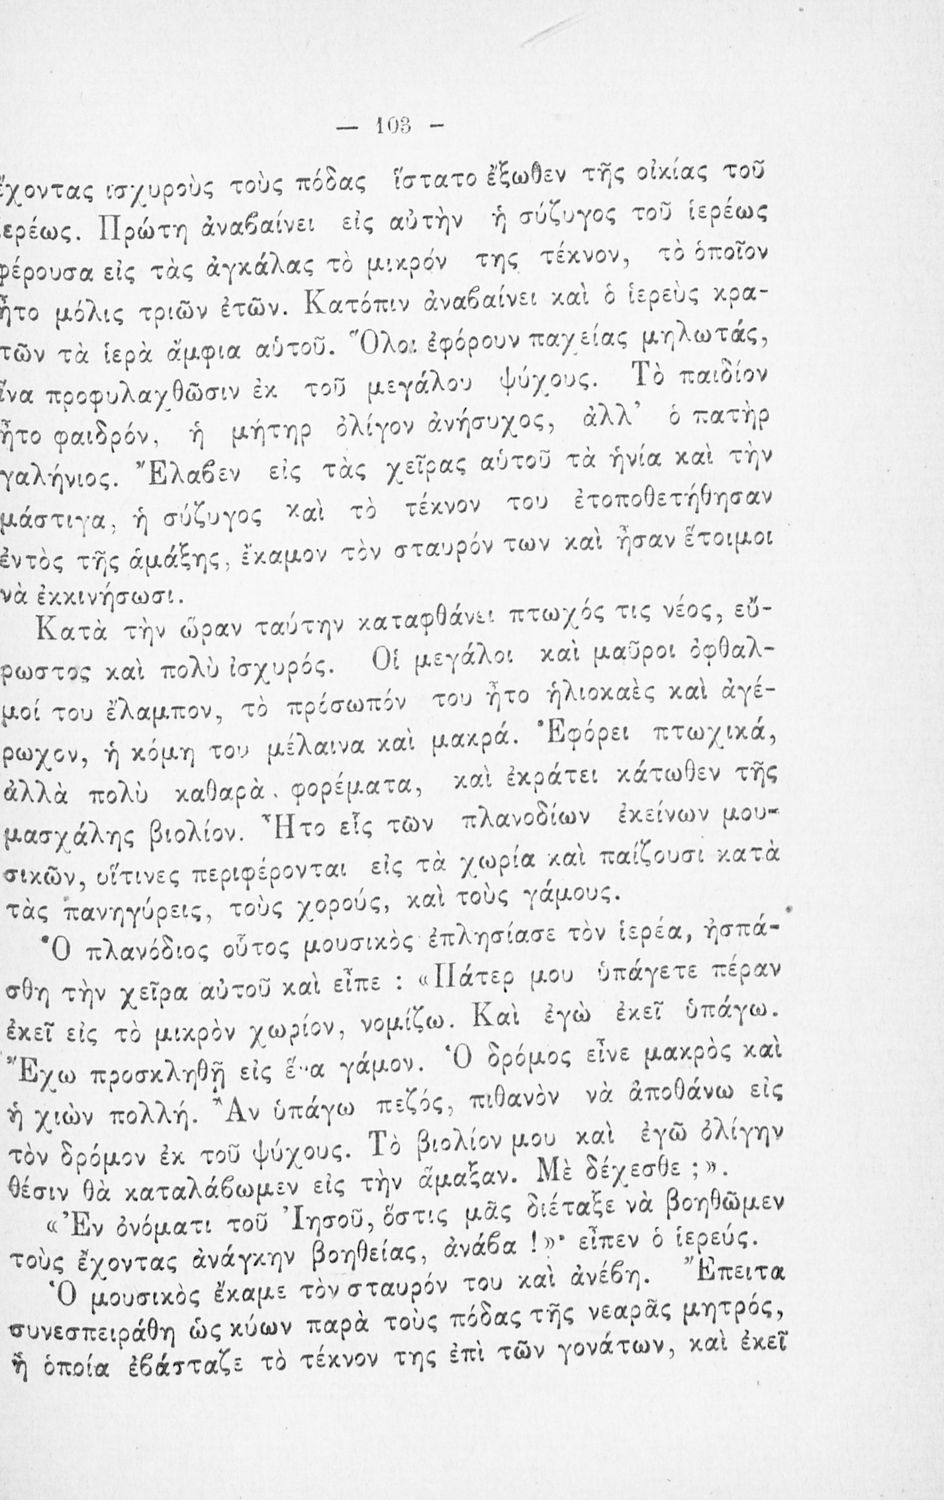 — 103 –
ἔχοντας ισχυροὺς τοὺς πόδας ἵστατο ἔξωθεν τῆς οἰκίας τοῦ
ἱερέως. Πρώτη ἀναβαίνει εἰς αὐτὴν ἡ σύζυγος τοῦ ἱερέως
φέρουσα εἰς τὰς ἀγκάλας τὸ μικρόν της τέκνον, τὸ ὁποῖον
ἦτο μόλις τριῶν ἐτῶν. Κατόπιν ἀναβαίνει καὶ ὁ ἱερεὺς κρα-
τῶν τὰ ἱερὰ ἄμφια αὑτοῦ. Ὅλοι ἐφόρουν παχείας μηλωτάς,
ἵνα προφυλαχθῶσιν ἐκ τοῦ μεγάλου ψύχους. Τὸ παιδίον
ἦτο φαιδρόν, ἡ μήτηρ ὀλίγον ἀνήσυχος, ἀλλ’ ὁ πατὴρ
γαλήνιος. Ἔλαβεν εἰς τὰς χεῖρας αὑτοῦ τὰ ἡνία καὶ τὴν
μάστιγα, ἡ σύζυγος καὶ τὸ τέκνον του ἐτοποθετήθησαν
ἐντὸς τῆς ἁμάξης, ἔκαμον τὸν σταυρόν των καὶ ἦσαν ἕτοιμοι
νὰ ἐκκινήσωσι.
Κατὰ τὴν ὥραν ταύτην καταφθάνει πτωχός τις νέος, εὔ-
ρωστος καὶ πολὺ ἰσχυρός. Οἱ μεγάλοι καὶ μαῦροι ὀφθαλ-
μοί του ἔλαμπον, τὸ πρόσωπόν του ἦτο ἡλιοκαὲς καὶ ἀγέ-
ρωχον, ἡ κόμη του μέλαινα καὶ μακρά. Ἐφόρει πτωχικά,
ἀλλὰ πολὺ καθαρὰ . φορέματα, καὶ ἐκράτει κάτωθεν τῆς
μασχάλης βιολίον. Ἦτο εἷς τῶν πλανοδίων ἐκείνων μου-
σικῶν, οἵτινες περιφέρονται εἰς τὰ χωρία καὶ παίζουσι κατὰ
τὰς πανηγύρεις, τοὺς χορούς, καὶ τοὺς γάμους.
Ὁ πλανόδιος οὗτος μουσικὸς ἐπλησίασε τὸν ἱερέα, ἠσπά-
σθη τὴν χεῖρα αὐτοῦ καὶ εἶπε : «Πάτερ μου ὑπάγετε πέραν
ἐκεῖ εἰς τὸ μικρὸν χωρίον, νομίζω. Καὶ ἐγὼ ἐκεῖ ὑπάγω.
Ἔχω προσκληθῆ εἰς ἕνα γάμον. Ὁ δρόμος εἶνε μακρὸς καὶ
ἡ χιὼν πολλή. Ἂν ὑπάγω πεζός, πιθανὸν νὰ ἀποθάνω εἰς
τὸν δρόμον ἐκ τοῦ ψύχους. Τὸ βιολίον μου καὶ ἐγῶ ὀλίγην
θέσιν θὰ καταλάβωμεν εἰς τὴν ἅμαξαν. Μὲ δέχεσθε ;».
«Ἐν ὀνόματι τοῦ Ἰησοῦ, ὅστις μᾶς διέταξε νὰ βοηθῶμεν
τοὺς ἔχοντας ἀνάγκην βοηθείας, ἀνάβα !»· εἶπεν ὁ ἱερεύς.
Ὁ μουσικὸς ἔκαμε τὸν σταυρόν του καὶ ἀνέβη. Ἔπειτα
συνεσπειράθη ὡς κύων παρὰ τοὺς πόδας τῆς νεαρᾶς μητρός,
ἡ ὁποία ἐβάσταζε τὸ τέκνον της ἐπὶ τῶν γονάτων, καὶ ἐκεῖ